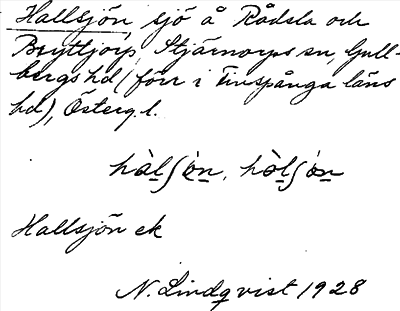 Hallsjön, sjö å Rådsla och
Bryttjorp, Stjärnorps sn, Gull-
bergs hd (förr i Finspånga läns
hd), Österg. l.
hàlʃön, hòlʃön
Hallsjön ek
N. Lindqvist 1928